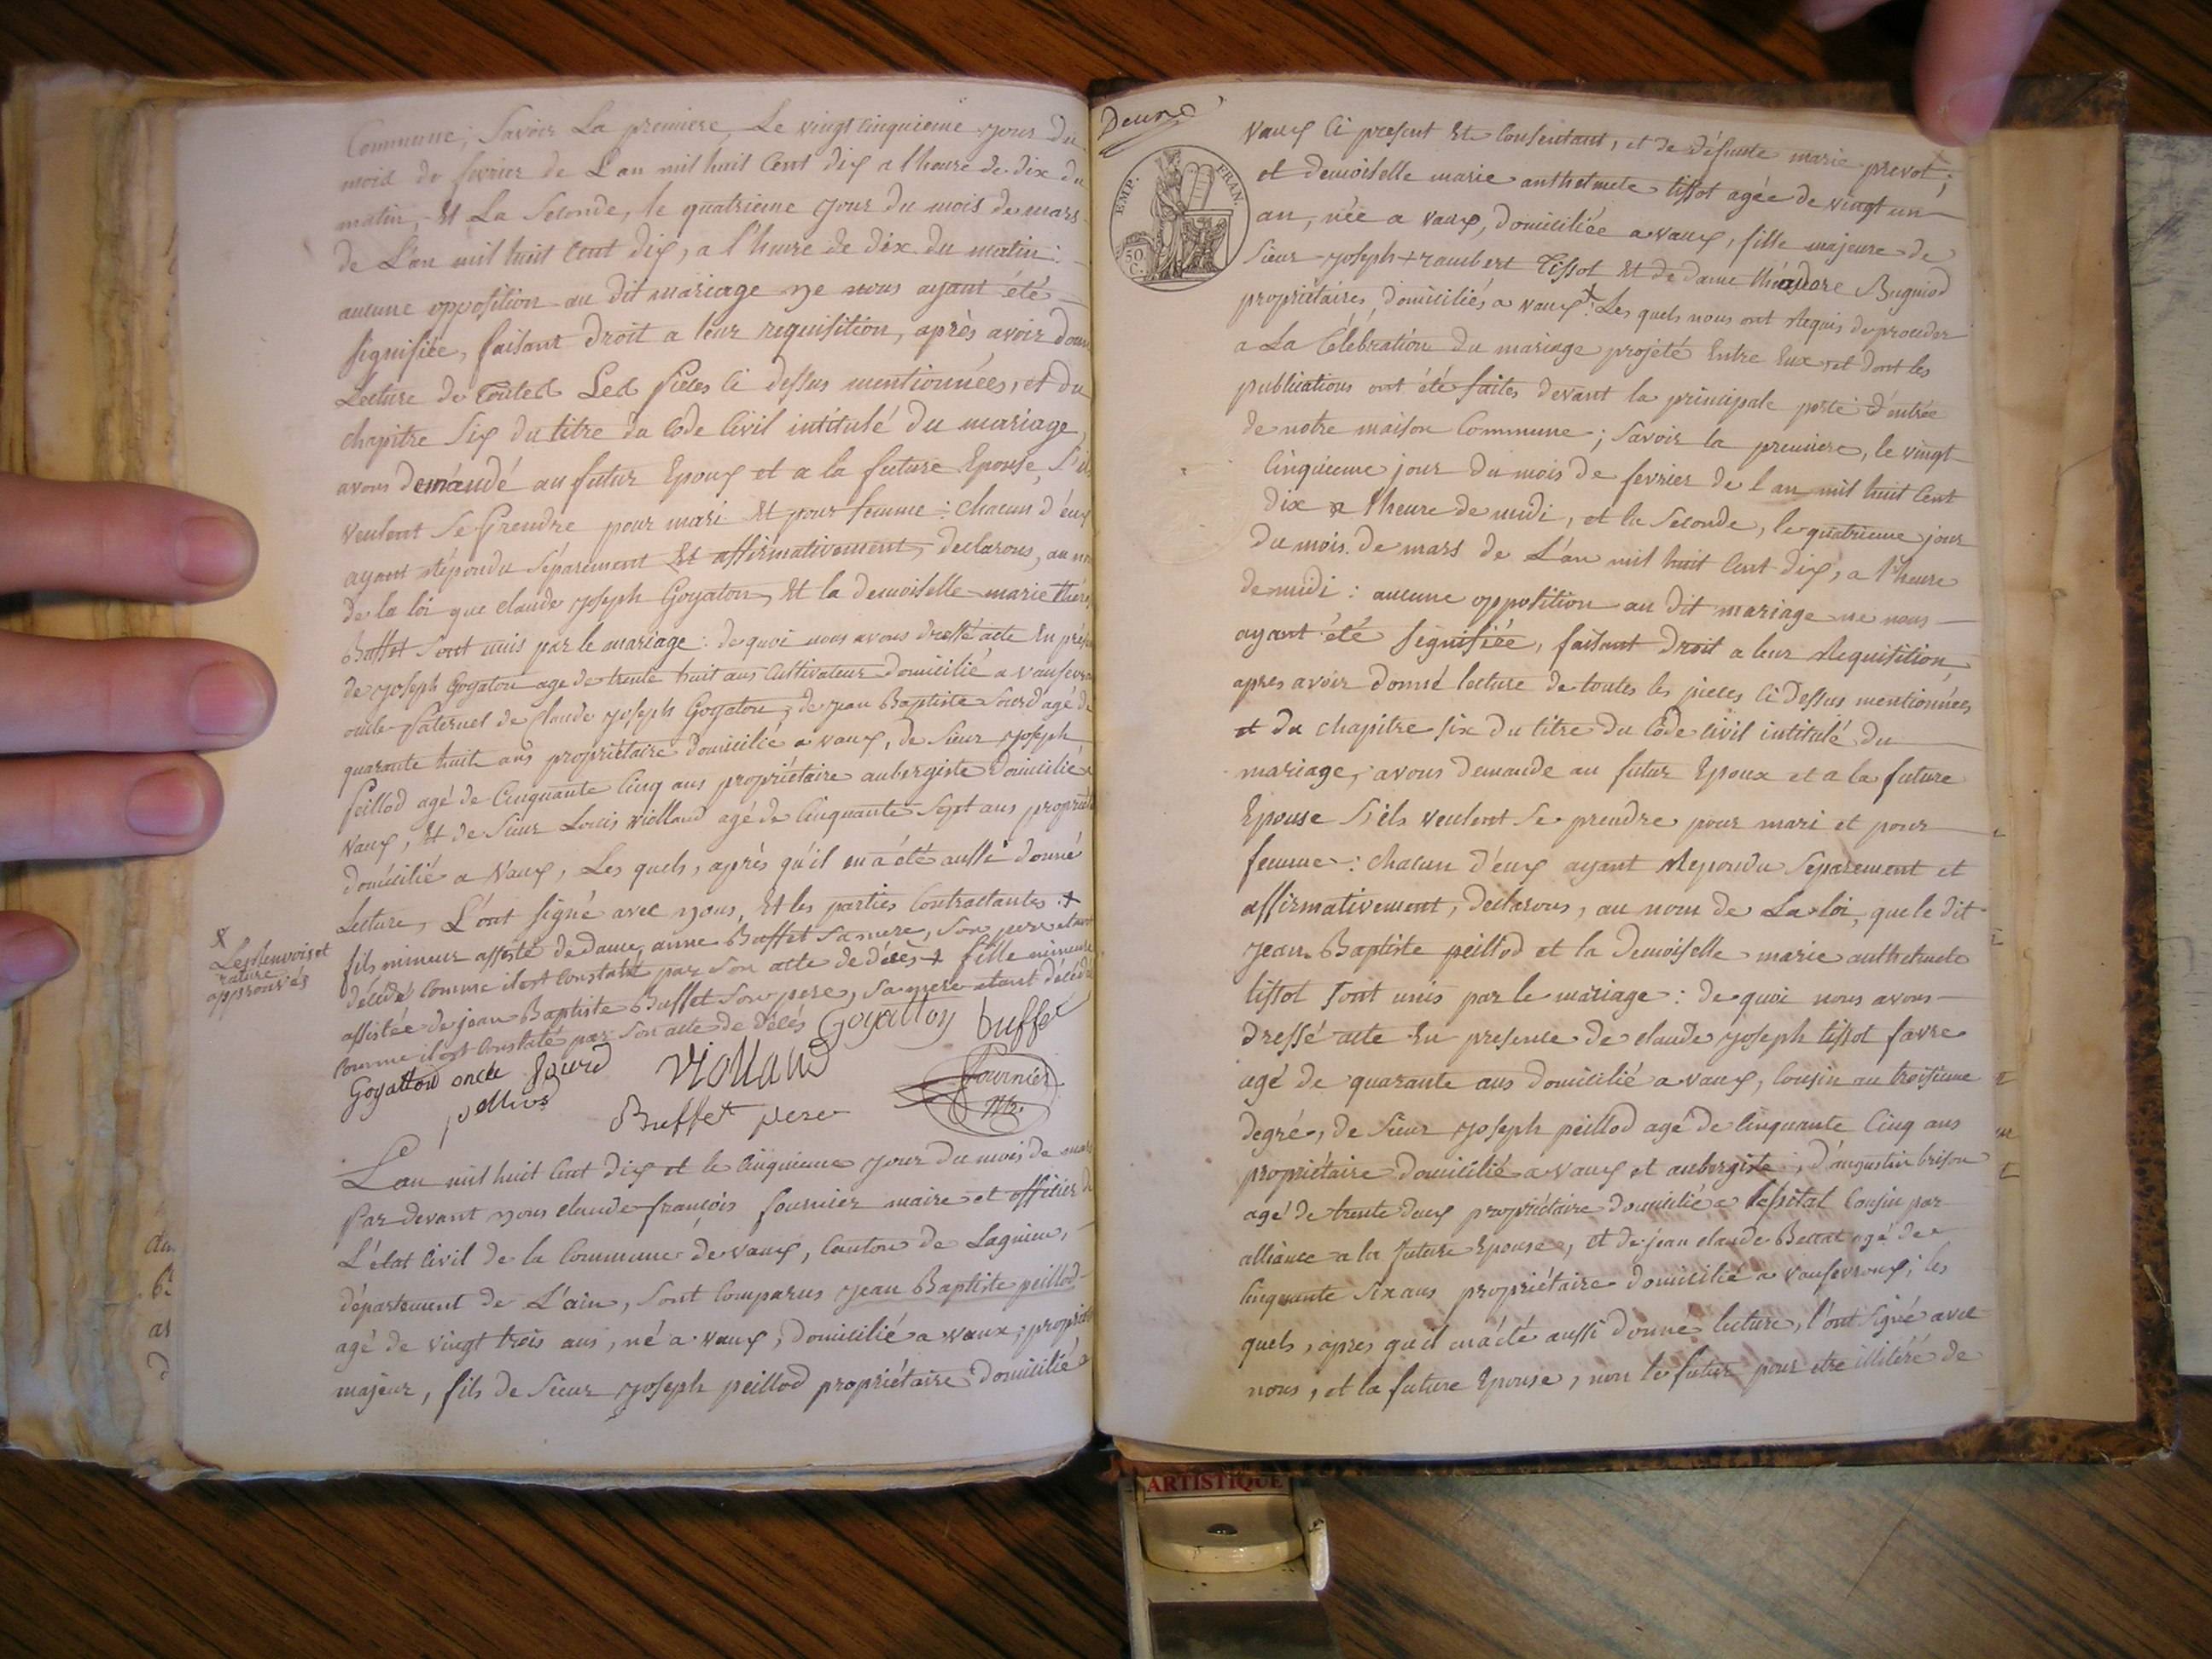 Commune; Savoir La premiere, Le vingt cinquieme jour du
mois de fevrier de L'an mil huit Cent dix a l'heure de dix du
matin, et La Seconde, le quatrieme jour du mois de mars
de L'an mil huit Cent dix, a l'heure de dix du matin:
aucune opposition au dit mariage ne nous ayant été
signifiée, faisant droit a leur requisition, après avoir donn
Lecture de Toutes Les pieces ci dessus mentionnées, et du
chapitre Six du titre du Code Civil intitulé du mariage,
avons demandé au futur Epoux et a la future Epouse, S'ils
veulent se prendre pour mari et pour femme: chacun d'eux
ayant répondu séparement et affirmativement, declarons, au nom
de la loi que claude joseph Goyaton, et la demoiselle marie thér
Buffet Sont unis par le mariage: de quoi nous avons dressé acte En prés
de joseph Goyaton age de trente huit ans Cultivateur domicilié a vaufevr
oncle paternel de Claude joseph Goyaton, de jean Baptiste Sourd agé de
quarante huit ans propriétaire domicilié a vaux, de Sieur joseph
peillod agé de Cinquante Cinq ans propriétaire aubergiste domicilié a
vaux, et de Sieur Louis violland agé de Cinquante Sept ans propriét
domicilié a Vaux, Les quels, après qu'il en a été aussi donné
Lecture, L'ont signé avec nous, et les parties Contractantes +
fils mineur assisté de dame anne Buffet sa mere, Son pere etant
décédé comme il est constaté par Son acte de décès + fille mineure
assistée de jean Baptiste Buffet Son pere, Sa mere etant décéd
comme il est Constaté par Son acte de décés Goyatton buffet
x
Les Renvois et
rature
approuvés
Goyatton oncle Sourd Violland Fournier
peillod Buffet pere m.
L'an mil huit Cent dix et le cinquieme jour du mois de mars
Par devant nous claude françois fournier maire et officier de
L'état Civil de la Commune de vaux, Canton de Lagnieu,
département de L'ain, Sont Comparus jean Baptiste peillod
agé de vingt trois ans, né a vaux, domicilié a vaux, propriét
majeur, fils de Sieur joseph peillod propriétaire domicilié a
Deuxe
EMP. FRAN.
50 C.
vaux ci present et Consentant, et de défunte marie prevot;
et demoiselle marie anthelmete tissot agée de vingt un
an, née a vaux, domiciliée a vaux, fille majeure de
Sieur joseph + rambert Tissot et de dame théodore Buguiod
propriétaires, domiciliés a vaux +: Les quels nous ont Requis de proceder
a La Célébration du mariage projeté Entre Eux, et dont les
publications ont été faites devant la principale porte d'entrée
de notre maison Commune; Savoir la premiere, le vingt
Cinquieme jour du mois de fevrier de l an mil huit Cent
dix a l'heure de midi, et la Seconde, le quatrieme jour
du mois de mars de L'an mil huit Cent dix, a l'heure
de midi: aucune opposition au dit mariage ne nous
ayant été signifiée, faisant droit a leur Requisition,
apres avoir donné lecture de toutes les pieces ci dessus mentionnées
et du chapitre six du titre du Code Civil intitulé du
mariage, avons demande au futur Epoux et a la future
Epouse S'ils veulent Se prendre pour mari et pour
femme: chacun d'eux ayant Repondu Séparement et
affirmativement, declarons, au nom de La loi, que le dit
jean Baptiste peillod et la demoiselle marie anthelmete
tissot Sont unis par le mariage: de quoi nous avons
dressé acte En presence de claude joseph tissot favre
agé de quarante ans domicilié a vaux, Cousin au troisieme
degré, de Sieur joseph peillod agé de Cinquante Cinq ans
propriétaire domicilié a vaux et aubergiste, d'augustin brison
agé de trente deux propriétaire domicilié a lepital Cousin par
alliance a la future Epouse, et de jean claude Berrat agé de
Cinquante Six ans propriétaire domicilié a vaufevroux; les
quels, apres qu'il en a été aussi donné lecture, l'ont Signé avec
nous, et la future Epouse, non le futur pour etre illitéré de
ARTISTIQUE